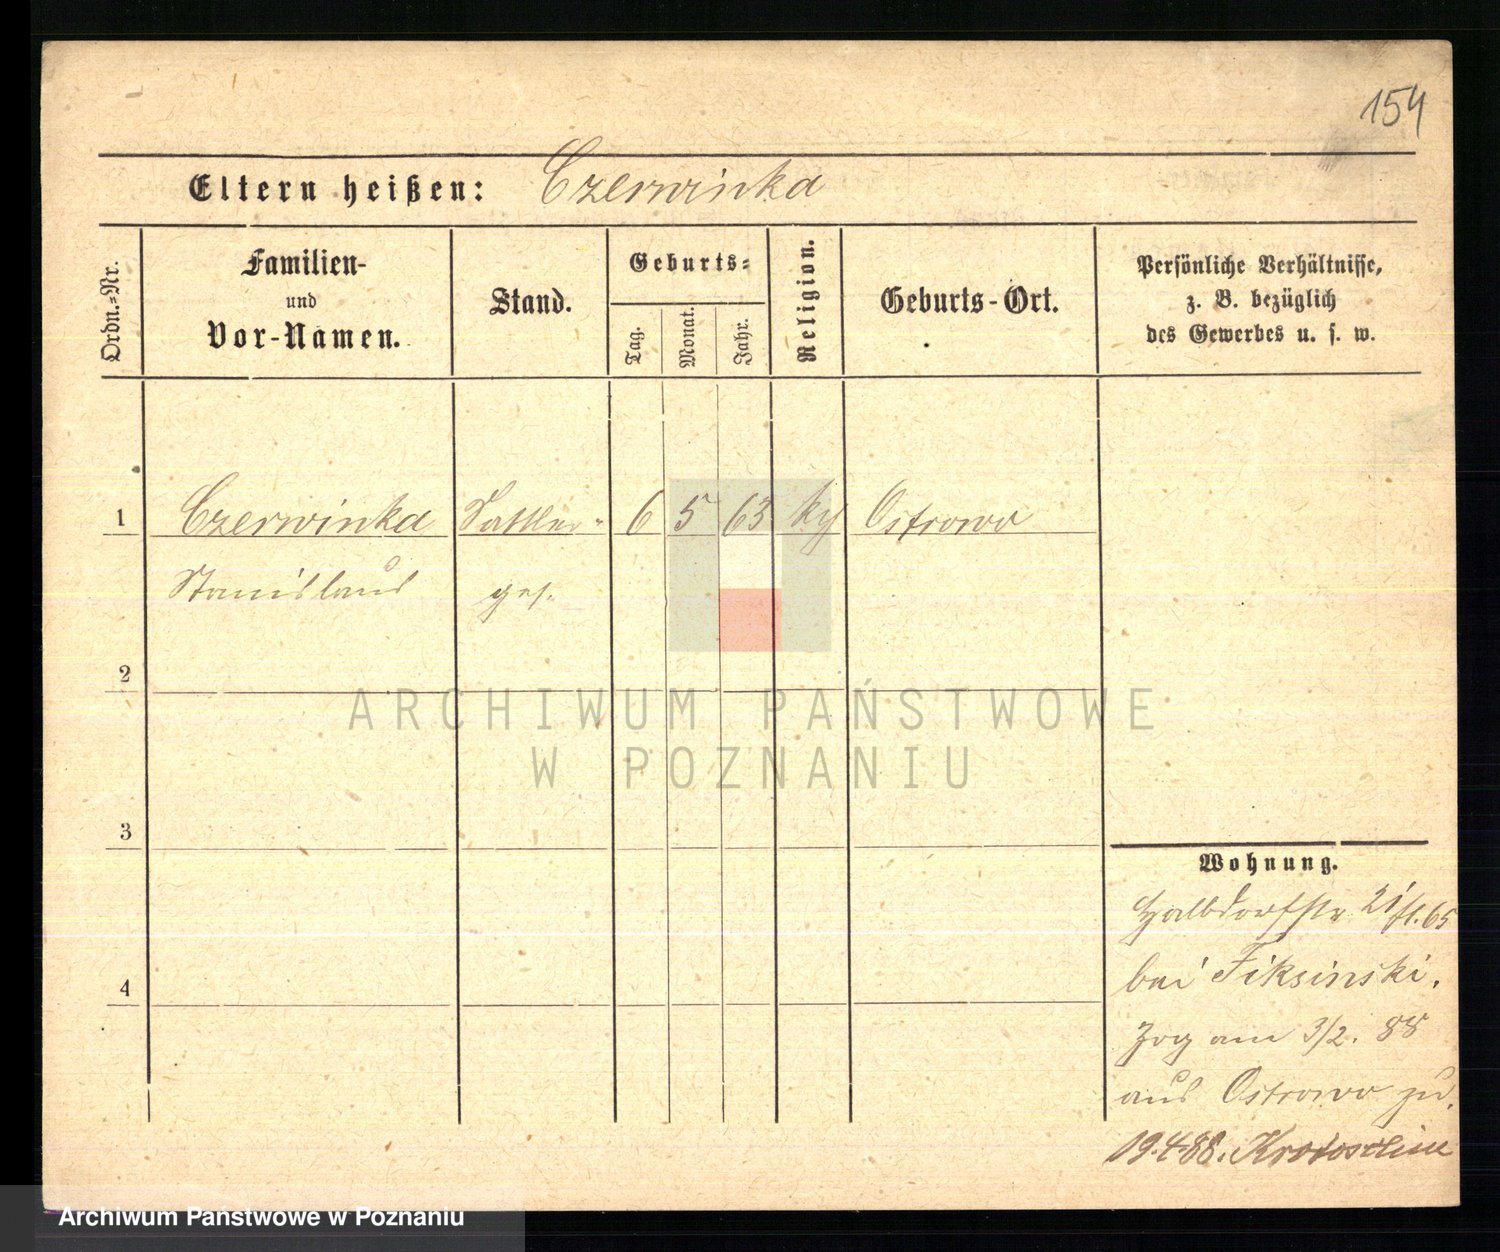 154
Eltern heißen: Czerwinka
Ordn.-Nr.
Familien-
und
Vor-Namen.
Stand.
Geburts-
Tag.
Monat.
Jahr.
Religion.
Geburts-Ort.
Persönliche Verhältnisse,
z. B. bezüglich
des Gewerbes u. s. w.
1 Czerwinka Sattler- 6 5 63 Ostrowo
Stanislaus ges.
2
3
4
Wohnung.
Halbdorfstr 21 65
bei Fiksinski.
Zog am 3/2. 88
aus Ostrowo zu.
19.4.88. Krotoschin
ARCHIWUM PAŃSTWOWE
W POZNANIU
Archiwum Państwowe w Poznaniu